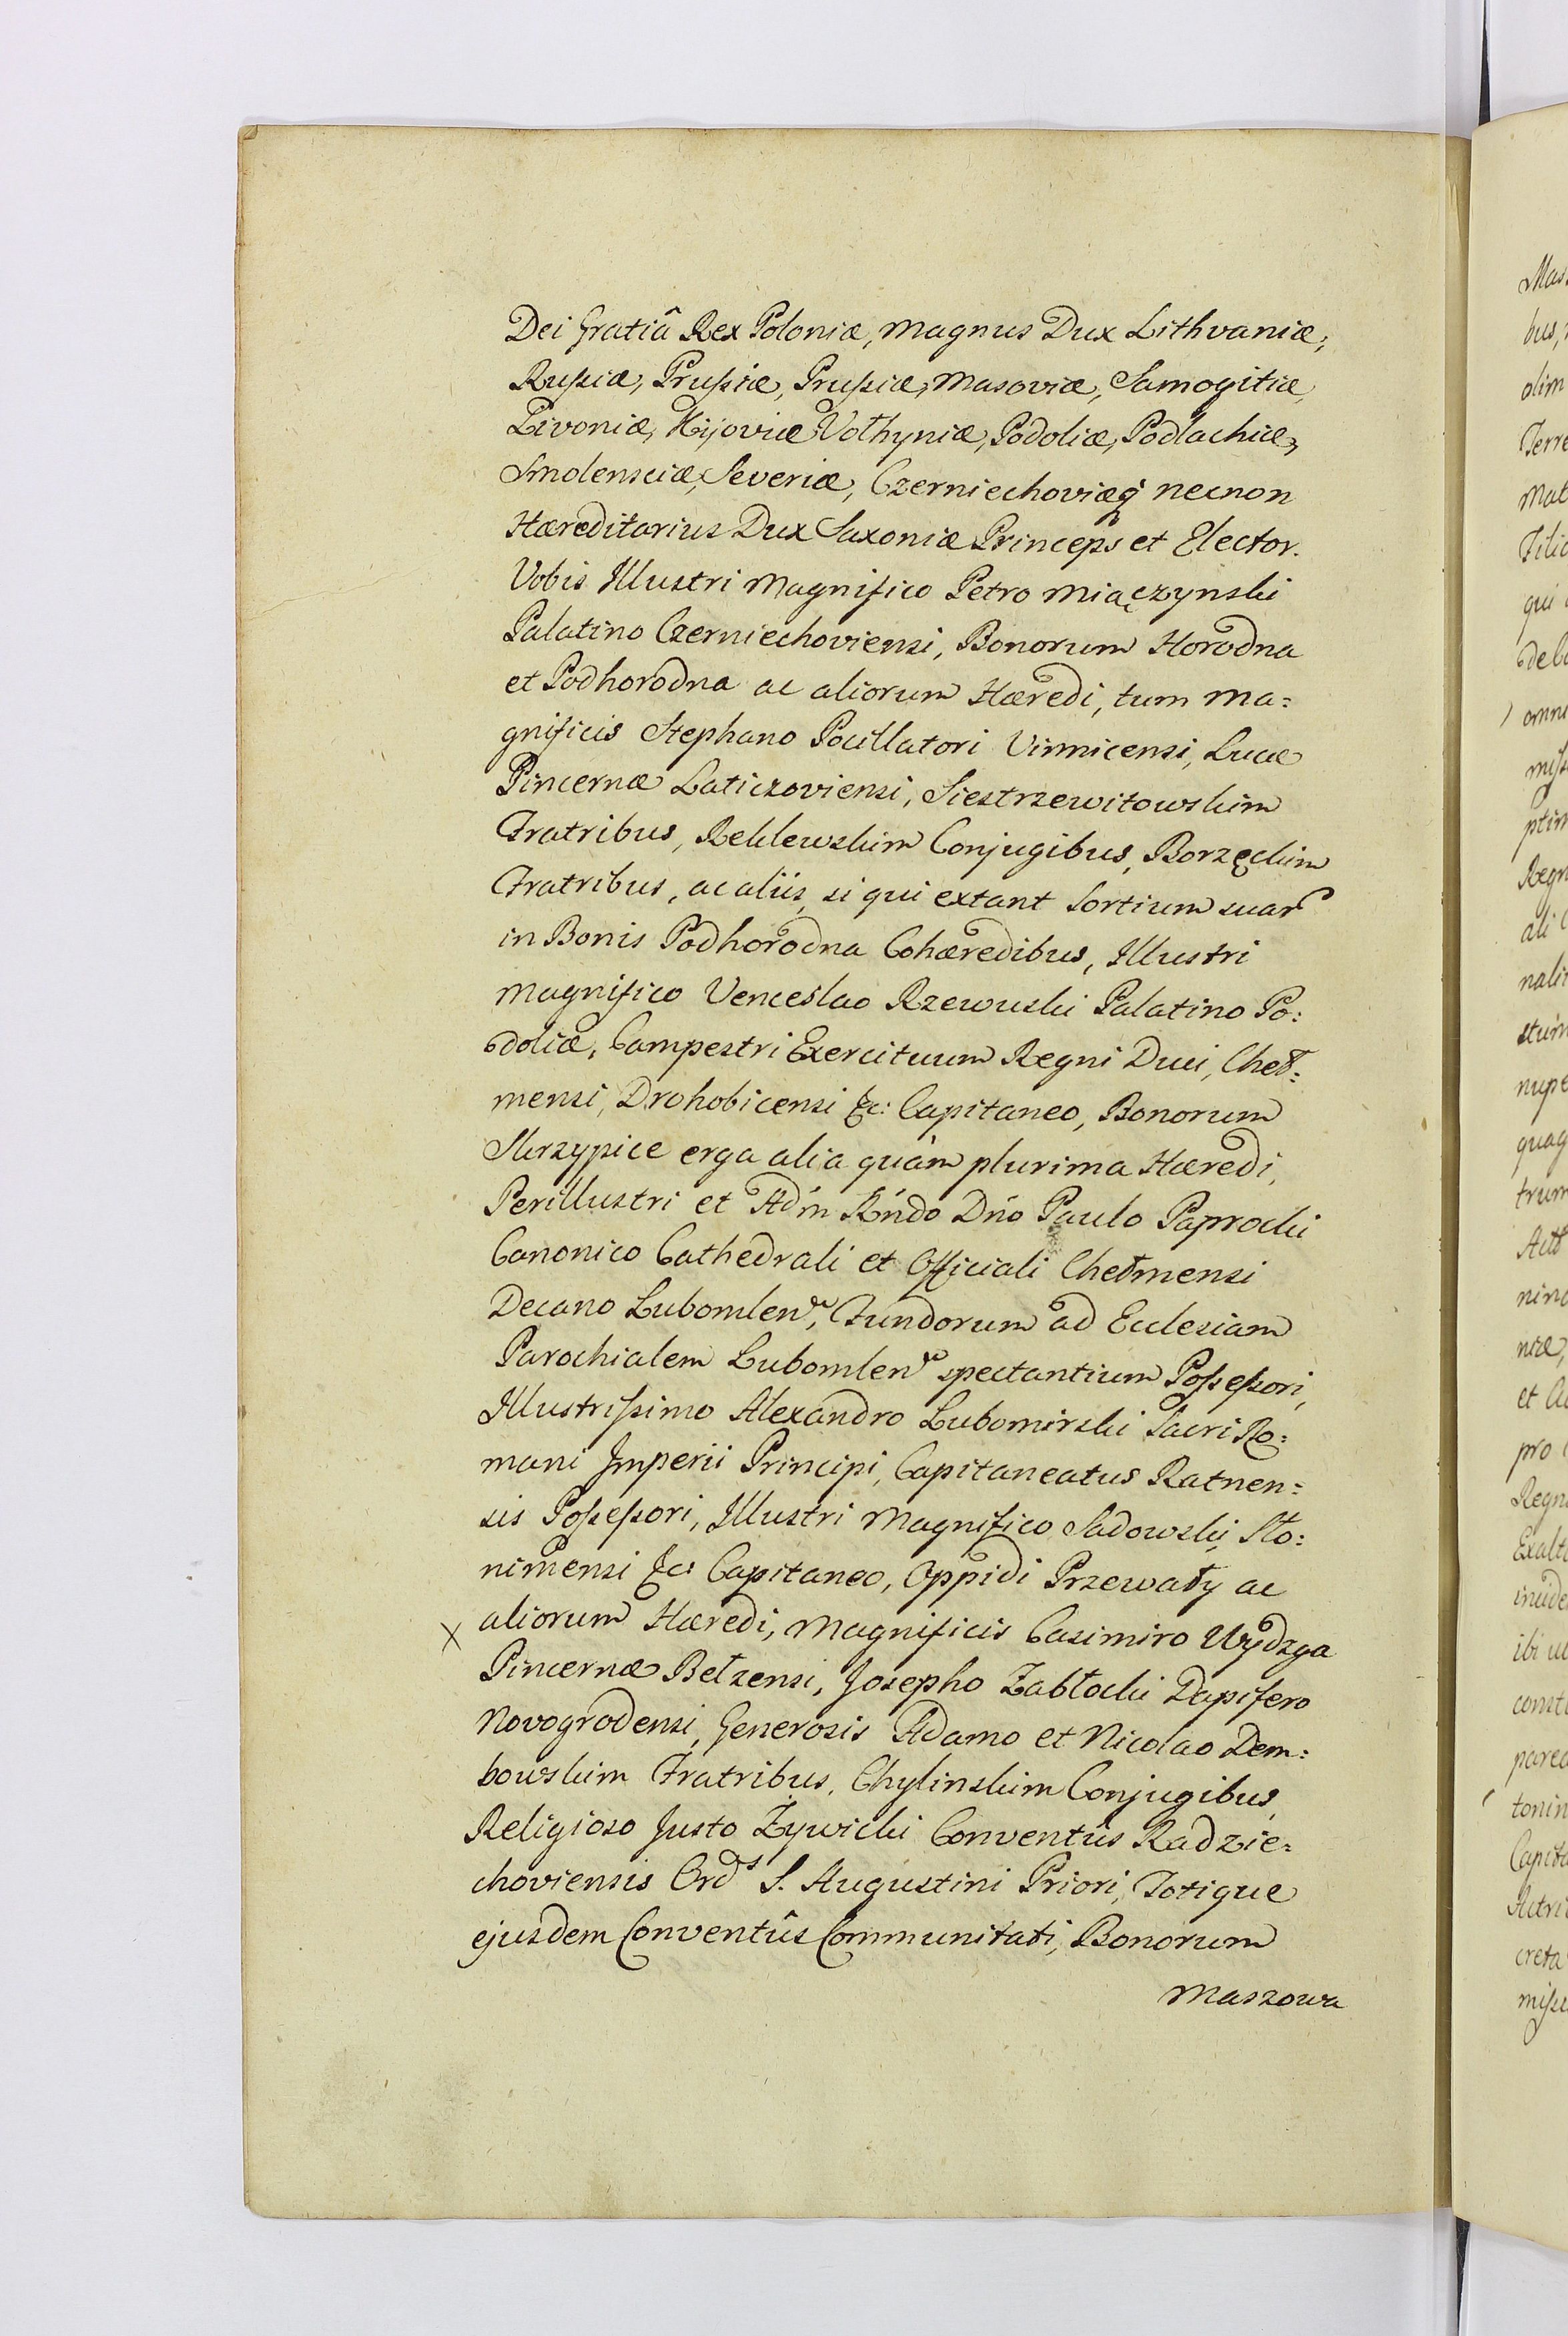 Dei Gratiâ Rex Poloniæ, Magnus Dux Lithvaniæ,
Rußiæ, Prußiæ, Prußiæ, Masoviæ, Samogitiæ,
Livoniæ, Kijoviæ Vołhyniæ, Podoliæ, Podlachiæ,
Smolensciæ, Severiæ, Czerniechoviæq́ necnon
Hæreditarius Dux Saxoniæ Princeps et Elector.
Vobis Illustri Magnifico Petro Miączynski
Palatino Czerniechoviensi, Bonorum Horodna
et Podhorodna ac aliorum Hæredi, tum Ma:
gnificis Stephano Pocillatori Vinnicensi, Lucæ
Pincernæ Laticzoviensi, Siestrzewitowskim
Fratribus, Reklewskim Conjugibus, Borzęckim
Fratribus, ac aliis, si qui extant Sortium suar
in Bonis Podhorodna Cohæredibus, Illustri
Magnifico Venceslao Rzewuski Palatino Po:
doliæ, Campestri Exercituum Regni Duci, Cheł:
mensi, Drohobicensi &c: Capitaneo, Bonorum
Skrzypice erga alia quàm plurima Hæredi,
Perillustri et Adm̃ Rńdo Dńo Paulo Paprocki
Canonico Cathedrali et Officiali Chełmensi
Decano Lubomlen, Fundorum ad Ecclesiam
Parochialem Lubomlen spectantium Poßeßori,
Illustrißimo Alexandro Lubomirski Sacri Ro:
mani Imperii Principi, Capitaneatus Ratnen:
sis Poßeßori, Illustri Magnifico Sadowski, Sło:
nimensi &c: Capitaneo, Oppidi Przewały ac
X aliorum Hæredi, Magnificis Casimiro Wydzga
Pincernæ Bełzensi, Josepho Zabłocki Dapifero
Novogrodensi, Generosis Adamo et Nicolao Dem:
bowskim Fratribus, Chylinskim Conjugibus,
Religioso Justo Zywicki Conventûs Radzie:
choviensis Ord͛s S. Augustini Priori, Totique
ejusdem Conventûs Communitati, Bonorum
Maszowa